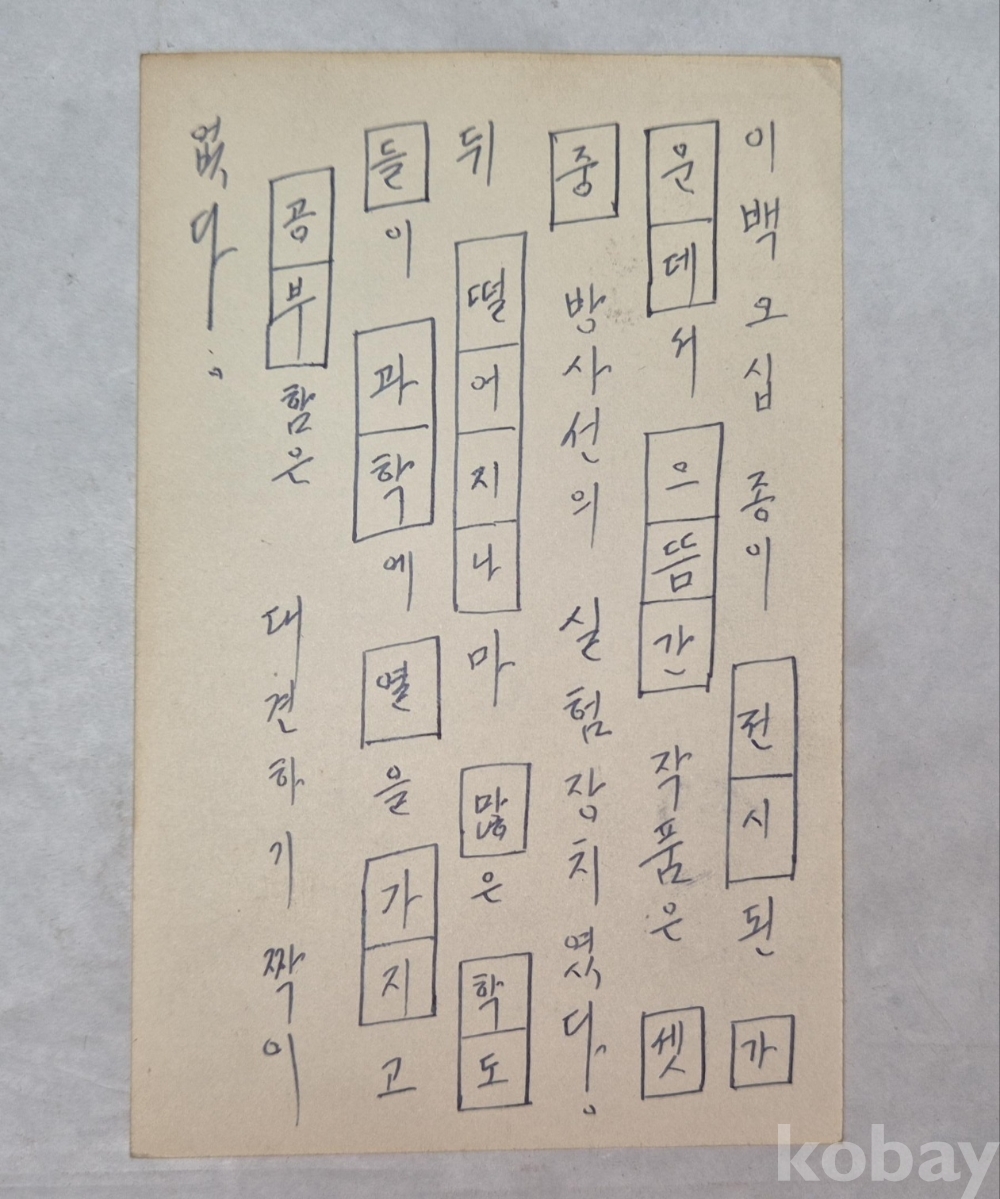 이백오십 종이 전시된 가
운데서 으뜸간 작품은 셋
중 방사선의 실험장치였다.
뒤떨어지나마 많은 학도
들이 과학에 열을 가지고
공부함은 대견하기 짝이
없다.
kobay